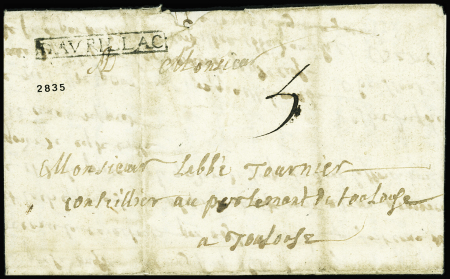 D'AVRILLAC
A Monsieur
2835
5
Monsieur Labbé Tournier
conseillier au parlement de toulouse
a Toulouse